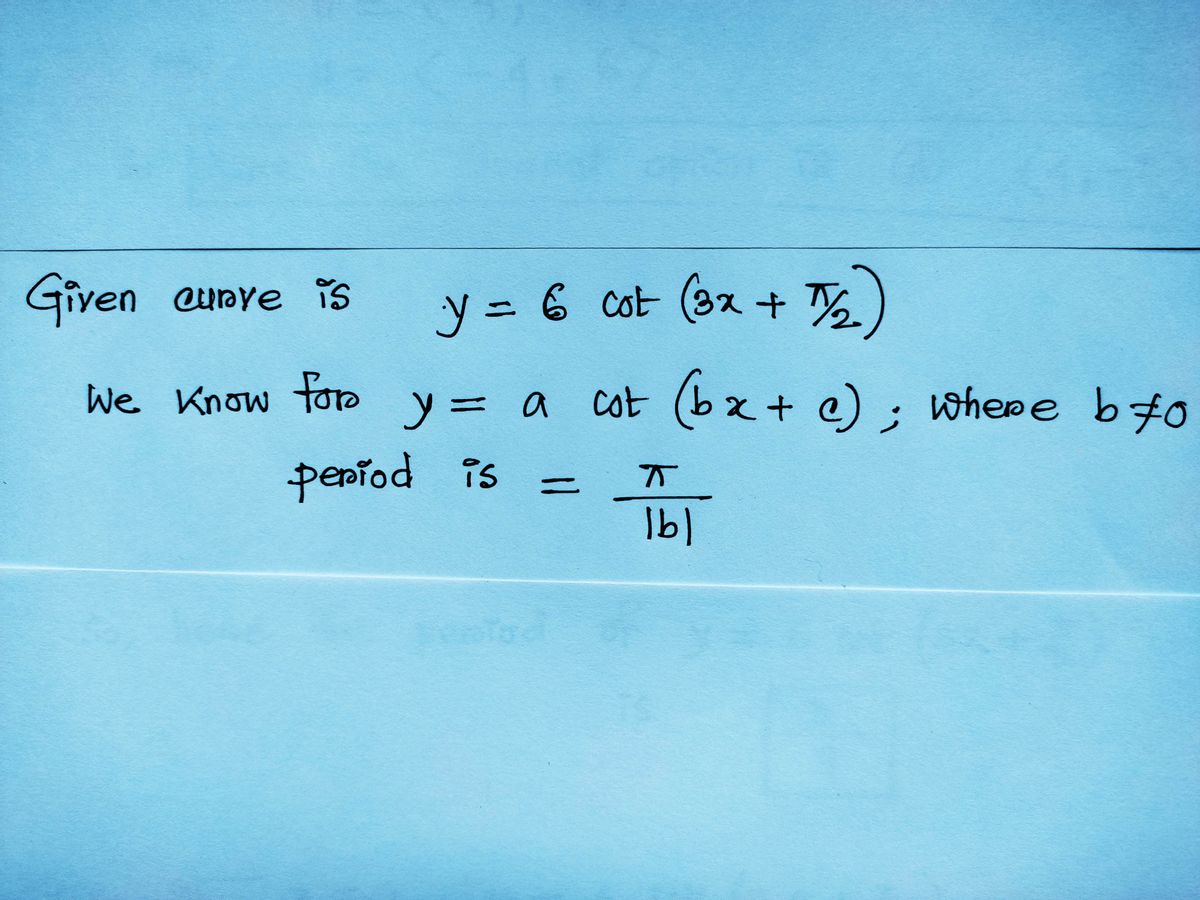 Given curve is y = 6 cot (3x + π/2)
We know for y = a cot (bx + c) ; where b ≠ 0
period is = π/|b|